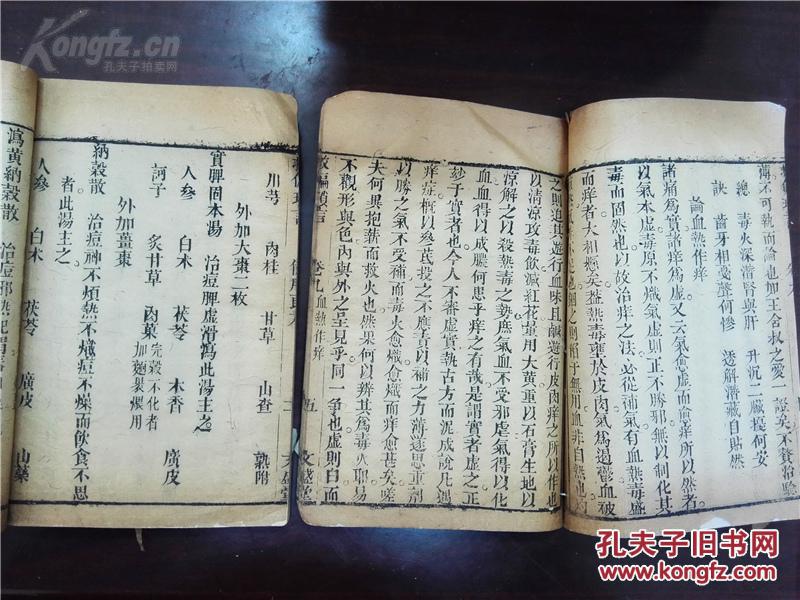 Kongfz.cn
孔夫子拍卖网
總 毒火深潛腎與肝 升沉二臟擾何安
訣 齒牙相戞聲何慘 透解潛藏自貼然
論血熱作痒
諸痛為實諸痒為虛又云氣愈虛而愈痒所以然者
以氣本虛毒原不熾氣虛則正不勝邪無以制化其
毒而固然也以故治痒之法必從補氣有血熱毒盛
而痒者大相懸矣益熱毒壅於皮肉氣為遏鬱血被
之則迫其遊行血味且鹹遊行皮肉痒之所以作也
以清凉攻毒飲減紅花量用大黄重以石膏生地以
凉解之以殺熱毒之勢庶氣血不受邪虐氣得以化
血血得以成膿何患乎痒之有哉是謂實者虛之正
妙于實者也今人不審虛實執古方而泥成說凡遇
痒症概以參芪投之不應責以補之力薄遂思重劑
以勝之氣不受補而毒火愈熾愈熾而痒愈甚矣嗟
夫何異抱薪而救火也然果何以辨其為毒火耶曷
不觀形與色內與外之呈見乎同一爭也虛則白而
救偏瑣言 卷九 血熱作痒 五 文盛堂
川芎 肉桂 甘草 山查 熟附
外加大棗二枚
實脾固本湯 治痘脾虛滑瀉此湯主之
人參 白术 茯苓 木香 廣皮
訶子 炙甘草 肉菓 完穀不化者加麵裹煨用
外加薑棗
納穀散 治痘神不煩熱不熾痘不燥而飲食不思
者此湯主之
人參 白术 茯苓 廣皮 山藥
瀉黄納穀散
孔夫子旧书网
www.kongfz.com